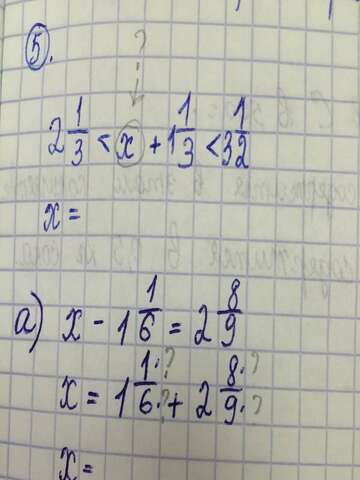 5.
?
2 1/3 < x + 1 1/3 < 3 1/2
x =
a) x - 1 1/6 = 2 8/9
x = 1 1·?/6·? + 2 8·?/9·?
x =